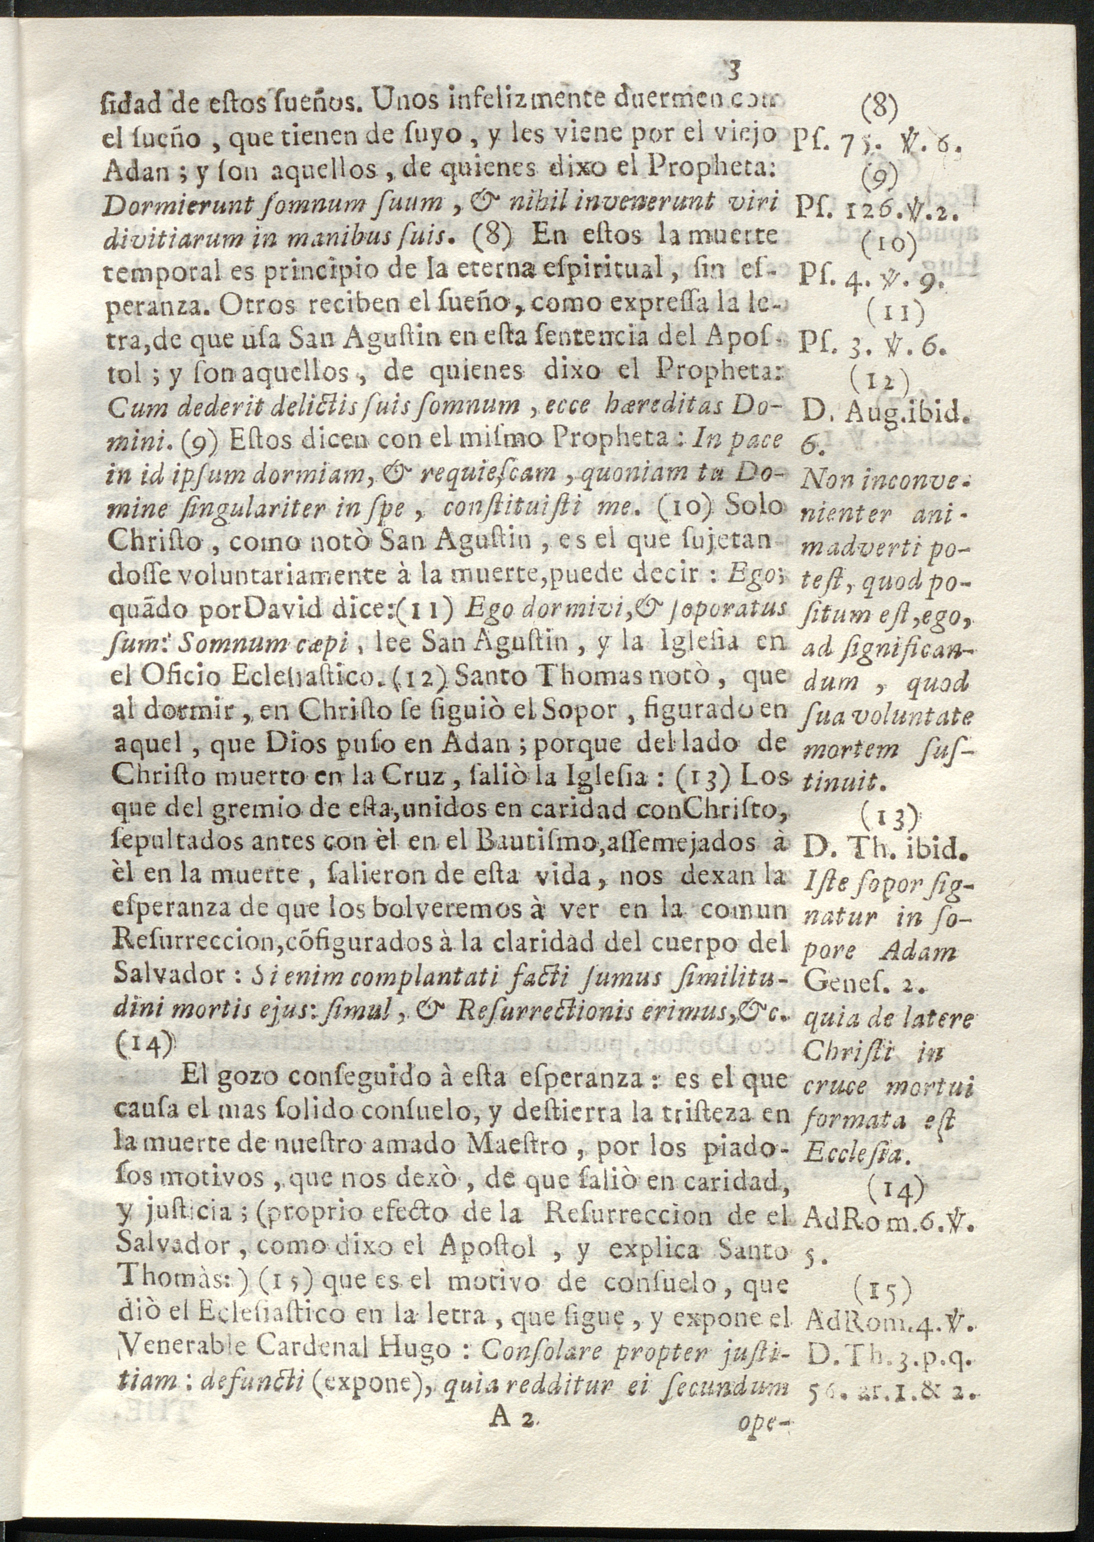 3
ſidad de eſtos ſueños. Unos infelizmente duermen con
el ſueño , que tienen de ſuyo , y les viene por el viejo
Adan ; y ſon aquellos , de quienes dixo el Propheta:
Dormierunt ſomnum ſuum , & nihil invenerunt viri
divitiarum in manibus ſuis. (8) En eſtos la muerte
temporal es principio de la eterna eſpiritual , ſin eſ-
peranza. Otros reciben el ſueño , como expreſſa la le-
tra,de que uſa San Aguſtin en eſta ſentencia del Apoſ-
tol ; y ſon aquellos , de quienes dixo el Propheta:
Cum dederit delictis ſuis ſomnum , ecce hæreditas Do-
mini. (9) Eſtos dicen con el miſmo Propheta : In pace
in id ipſum dormiam, & requieſcam , quoniam tu Do-
mine ſingulariter in ſpe , conſtituiſti me. (10) Solo
Chriſto , como notò San Aguſtin , es el que ſujetan-
doſſe voluntariamente à la muerte,puede decir : Ego;
quãdo porDavid dice:(11) Ego dormivi,& ſoporatus
ſum: Somnum cæpi , lee San Aguſtin , y la Igleſia en
el Oficio Ecleſiaſtico. (12) Santo Thomas notò , que
al dormir , en Chriſto ſe ſiguiò el Sopor , figurado en
aquel , que Dios puſo en Adan ; porque del lado de
Chriſto muerto en la Cruz , ſaliò la Igleſia : (13) Los
que del gremio de eſta,unidos en caridad conChriſto,
ſepultados antes con èl en el Bautiſmo,aſſemejados à
èl en la muerte , ſalieron de eſta vida , nos dexan la
eſperanza de que los bolveremos à ver en la comun
Reſurreccion,cõfigurados à la claridad del cuerpo del
Salvador : Si enim complantati facti ſumus ſimilitu-
dini mortis ejus: ſimul , & Reſurrectionis erimus,&c.
(14)
El gozo conſeguido à eſta eſperanza : es el que
cauſa el mas ſolido conſuelo, y deſtierra la triſteza en
la muerte de nueſtro amado Maeſtro , por los piado-
ſos motivos , que nos dexò , de que ſaliò en caridad,
y juſticia ; (proprio efecto de la Reſurreccion de el
Salvador , como dixo el Apoſtol , y explica Santo
Thomàs: ) (15) que es el motivo de conſuelo , que
diò el Ecleſiaſtico en la letra , que ſigue , y expone el
Venerable Cardenal Hugo : Conſolare propter juſti-
tiam : defuncti (expone), quia redditur ei ſecundum
A 2.
ope-
(8)
Pſ. 75. ℣. 6.
(9)
Pſ. 126.℣.2.
(10)
Pſ. 4. ℣. 9.
(11)
Pſ. 3. ℣. 6.
(12)
D. Aug.ibid.
6.
Non inconve-
nienter ani-
madverti po-
teſt, quod po-
ſitum eſt,ego,
ad ſignifican-
dum , quod
ſua voluntate
mortem ſuſ-
tinuit.
(13)
D. Th. ibid.
Iſte ſopor ſig-
natur in ſo-
pore Adam
Geneſ. 2.
quia de latere
Chriſti in
cruce mortui
formata eſt
Eccleſia.
(14)
AdRom.6.℣.
5.
(15)
AdRom.4.℣.
D.Th.3.p.q.
56. ar.1.& 2.